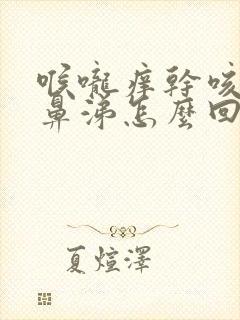 喉嚨痒幹咳
鼻涕怎麼回
夏煊澤